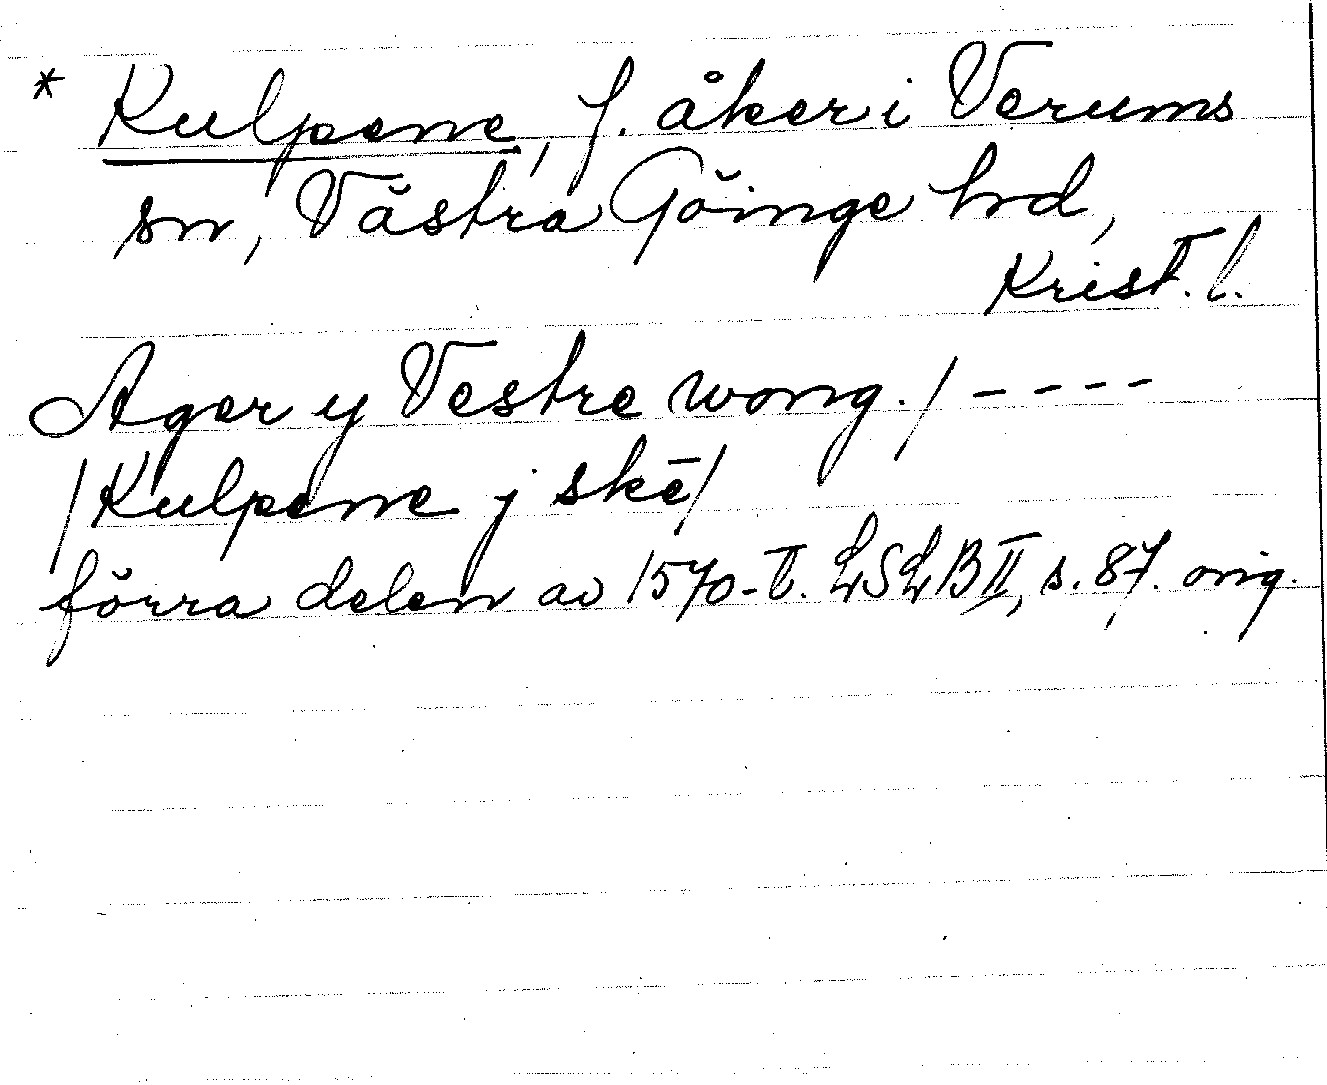 * Kulpene, f. åker i Verums
sn, Västra Göinge hd,
Krist. l.
Ager y Vestre wong. / - - - -
/ Kulpene j skē /
förra delen av 1570-t. LSLB II, s. 87. orig.